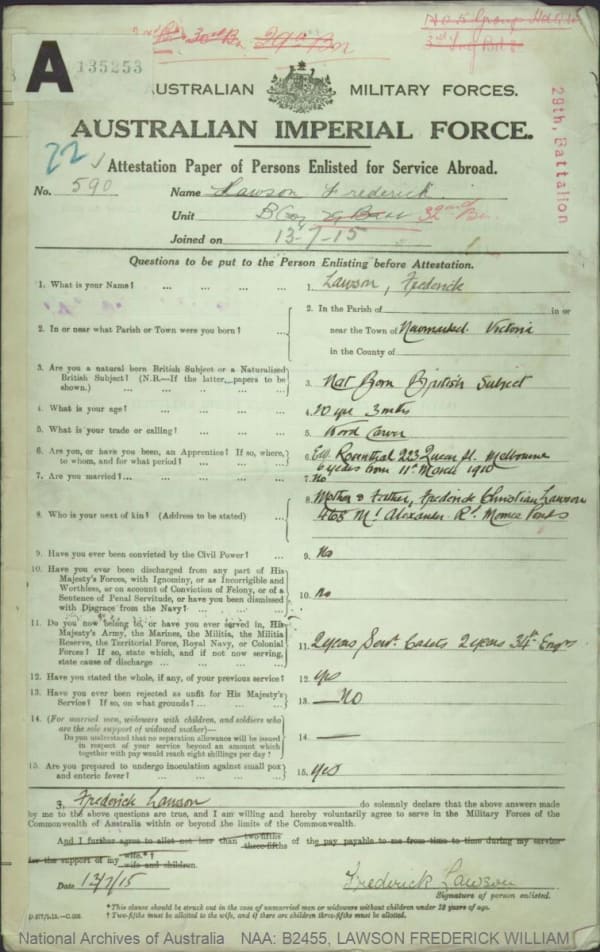 30th Bn 29th Bn
A
135253
AUSTRALIAN MILITARY FORCES.
AUSTRALIAN IMPERIAL FORCE.
29th, Battalion
22
Attestation Paper of Persons Enlisted for Service Abroad.
No. 590 Name Lawson Frederick
Unit B Coy 32nd Bn
Joined on 13-7-15
Questions to be put to the Person Enlisting before Attestation.
1. What is your Name? ... ... ... ... 1. Lawson, Frederick
2. In or near what Parish or Town were you born? ... 2. In the Parish of in or
near the Town of Newmarket Victoria
in the County of
3. Are you a natural born British Subject or a Naturalized
British Subject? (N.B.—If the latter, papers to be
shown.) ... ... ... ... 3. Nat Born British Subject
4. What is your age? ... ... ... ... 4. 20 yrs 3 mths
5. What is your trade or calling? ... ... ... 5. Wood Carver
6. Are you, or have you been, an Apprentice? If so, where,
to whom, and for what period? ... ... ... 6. Rosenthal 223 Queen St. Melbourne
6 years from 11th March 1910
7. Are you married? ... ... ... ... 7. No
8. Who is your next of kin? (Address to be stated) ... 8. Mother & Father, Frederick Christian Lawson
468 Mt Alexander Rd Moonee Ponds
9. Have you ever been convicted by the Civil Power? ... 9. No
10. Have you ever been discharged from any part of His
Majesty's Forces, with Ignominy, or as Incorrigible and
Worthless, or on account of Conviction of Felony, or of a
Sentence of Penal Servitude, or have you been dismissed
with Disgrace from the Navy? ... ... ... 10. No
11. Do you now belong to, or have you ever served in, His
Majesty's Army, the Marines, the Militia, the Militia
Reserve, the Territorial Force, Royal Navy, or Colonial
Forces? If so, state which, and if not now serving,
state cause of discharge ... ... ... 11. 2 years Senr. Cadets 2 years 34th Engrs
12. Have you stated the whole, if any, of your previous service? 12. yes
13. Have you ever been rejected as unfit for His Majesty's
Service? If so, on what grounds? ... ... ... 13. — NO
14. (For married men, widowers with children, and soldiers who
are the sole support of widowed mother)—
Do you understand that no separation allowance will be issued
in respect of your service beyond an amount which
together with pay would reach eight shillings per day? 14. —
15. Are you prepared to undergo inoculation against small pox
and enteric fever? ... ... ... ... 15. Yes
I, Frederick Lawson do solemnly declare that the above answers made
by me to the above questions are true, and I am willing and hereby voluntarily agree to serve in the Military Forces of the
Commonwealth of Australia within or beyond the limits of the Commonwealth.
And I further agree to allot not less than two-fifths three-fifths of the pay payable to me from time to time during my service
for the support of my wife.*† wife and children.
Date 12/7/15 Frederick Lawson
Signature of person enlisted.
*This clause should be struck out in the case of unmarried men or widowers without children under 18 years of age.
† Two-fifths must be allotted to the wife, and if there are children three-fifths must be allotted.
National Archives of Australia NAA: B2455, LAWSON FREDERICK WILLIAM